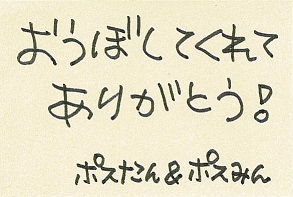 おうぼしてくれて
ありがとう!
ポスたん&ポスみん